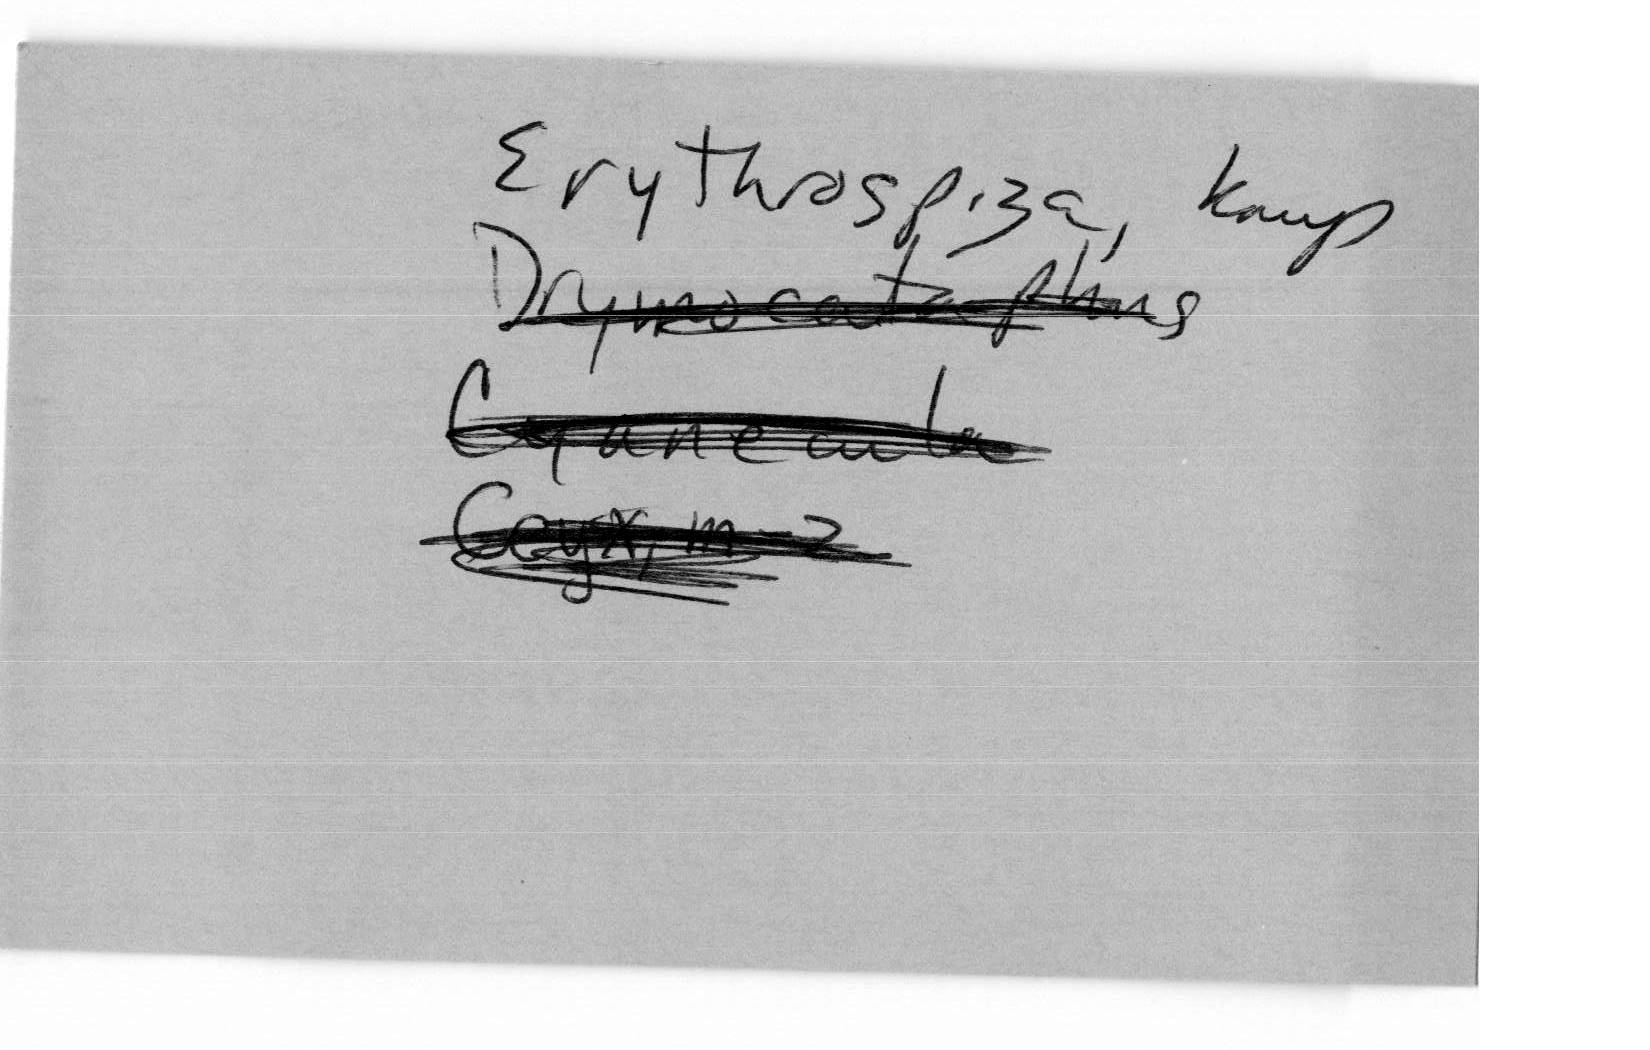 Erythrospiza, Kaup
Drymocataphus
Cyanecula
Ceyx, m-z